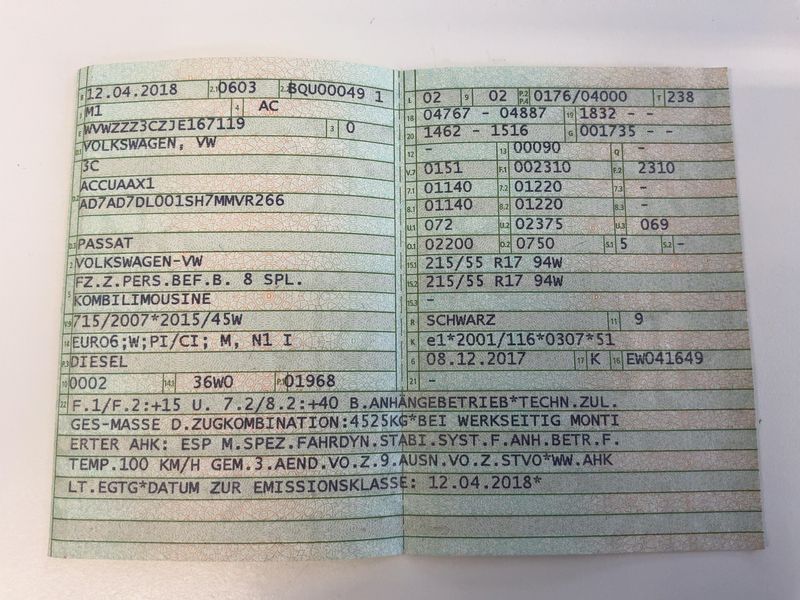 B 12.04.2018 2.1 0603 2.2 BQU00049 1
J M1 4 AC
E WVWZZZ3CZJE167119 3 0
D.1 VOLKSWAGEN, VW
3C
D.2 ACCUAAX1
AD7AD7DL001SH7MMVR266
D.3 PASSAT
2 VOLKSWAGEN-VW
5 FZ.Z.PERS.BEF.B. 8 SPL.
KOMBILIMOUSINE
V.9 715/2007*2015/45W
14 EURO6;W;PI/CI; M, N1 I
P.3 DIESEL
10 0002 14.1 36W0 P.1 01968
L 02 9 02 P.2 P.4 0176/04000 T 238
18 04767 - 04887 19 1832 - -
20 1462 - 1516 G 001735 - -
12 - 13 00090 Q -
V.7 0151 F.1 002310 F.2 2310
7.1 01140 7.2 01220 7.3 -
8.1 01140 8.2 01220 8.3 -
U.1 072 U.2 02375 U.3 069
O.1 02200 O.2 0750 S.1 5 S.2 -
15.1 215/55 R17 94W
15.2 215/55 R17 94W
15.3 -
R SCHWARZ 11 9
K e1*2001/116*0307*51
6 08.12.2017 17 K 16 EW041649
21 -
22 F.1/F.2:+15 U. 7.2/8.2:+40 B.ANHÄNGEBETRIEB*TECHN.ZUL.
GES-MASSE D.ZUGKOMBINATION:4525KG*BEI WERKSEITIG MONTI
ERTER AHK: ESP M.SPEZ.FAHRDYN.STABI.SYST.F.ANH.BETR.F.
TEMP.100 KM/H GEM.3.AEND.VO.Z.9.AUSN.VO.Z.STVO*WW.AHK
LT.EGTG*DATUM ZUR EMISSIONSKLASSE: 12.04.2018*